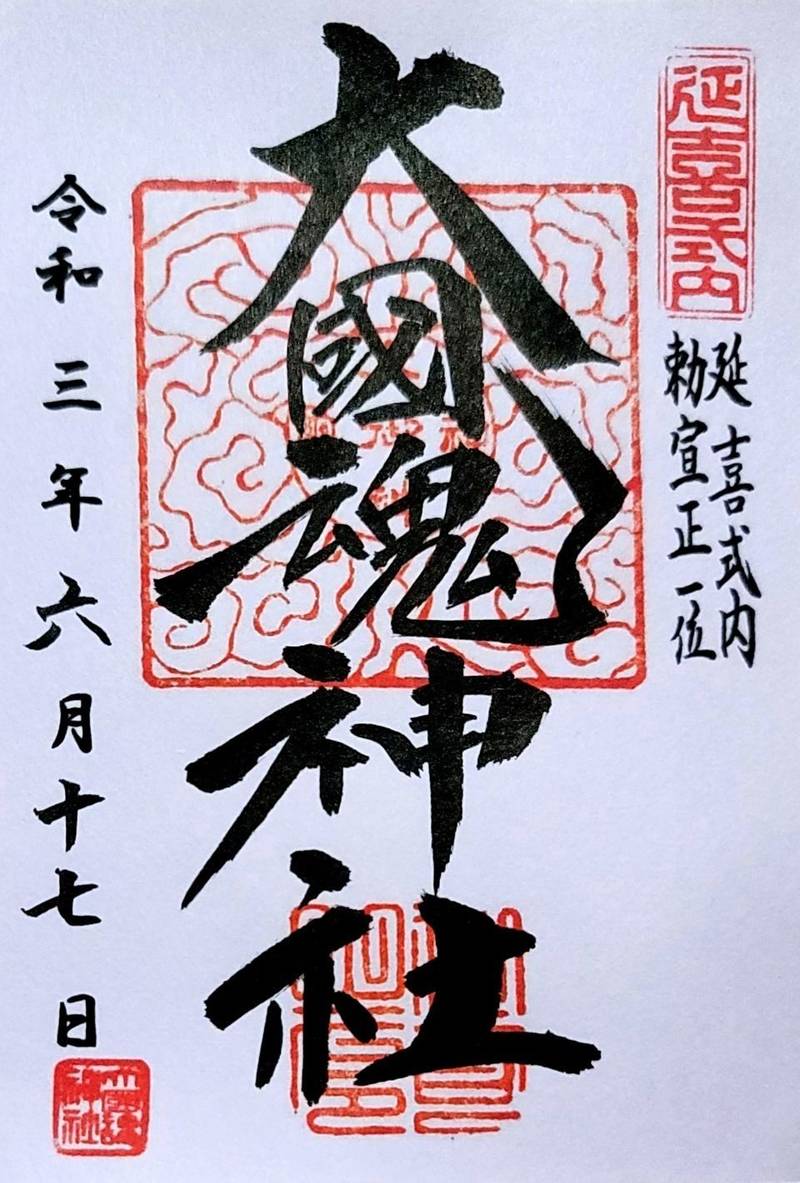 延喜式内
延喜式内
勅宣正一位
大國魂神社
令和三年六月十七日